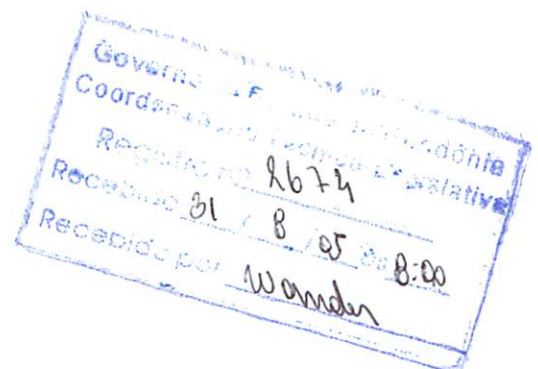 Governo
Coordenadoria Técnica Legislativa
Registro no 2674
Recebido 31 / 8 / 05 às 8:00
Recebido por Wander